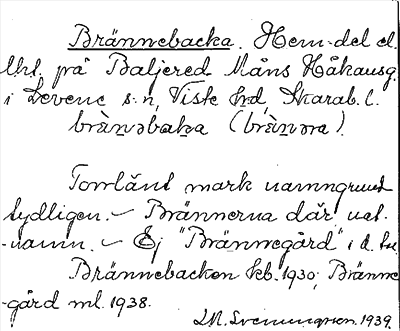 Brännebacka. Hem-del el.
lht. på Baljered Måns Håkansg.
i Levene s:n, Viste hd, Skarab. l.
brànəbaka (brànəra).
Torrlänt mark namngrund
tydligen. — Brännerna där nat.
-namn. — Ej "Brännegård" i d. tr.
Brännebacken kb. 1930; Bränne
-gård ml. 1938.
1939.